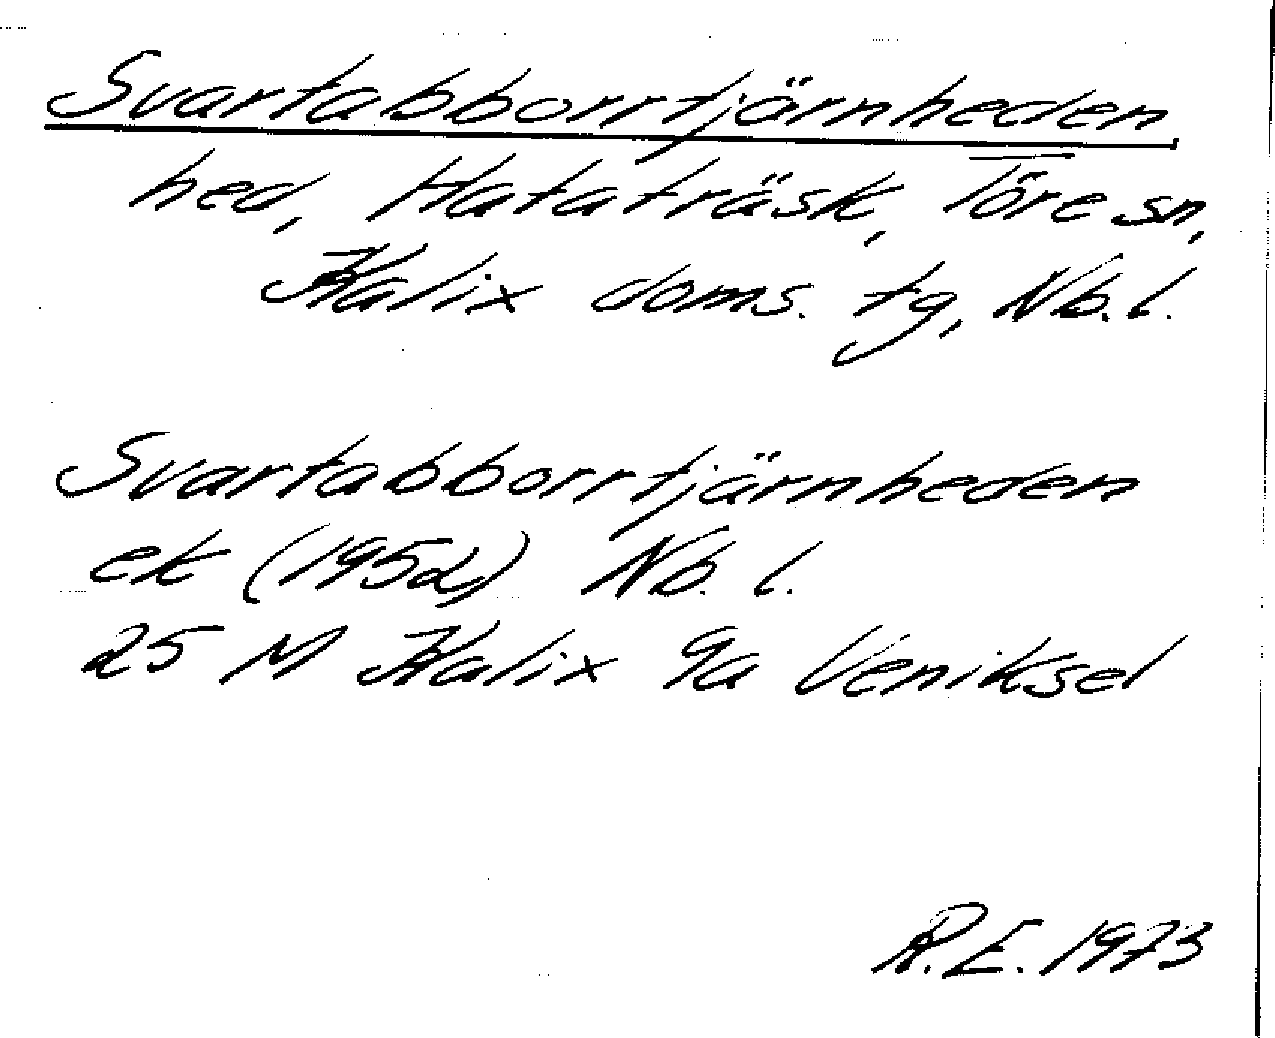 Svartabborrtjärnheden
hed, Hataträsk, Töre sn,
Kalix doms. tg, Nb. l.
Svartabborrtjärnheden
ek (1952) Nb. l.
25 M Kalix 9a Veniksel
R.E. 1973